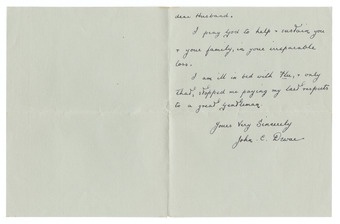 dear Husband.
I pray God to help & sustain you
& your family, in your irreparable
loss.
I am ill in bed with Flu, & only
that, stopped me paying my last respects
to a great gentleman.
Yours Very Sincerely
John C.